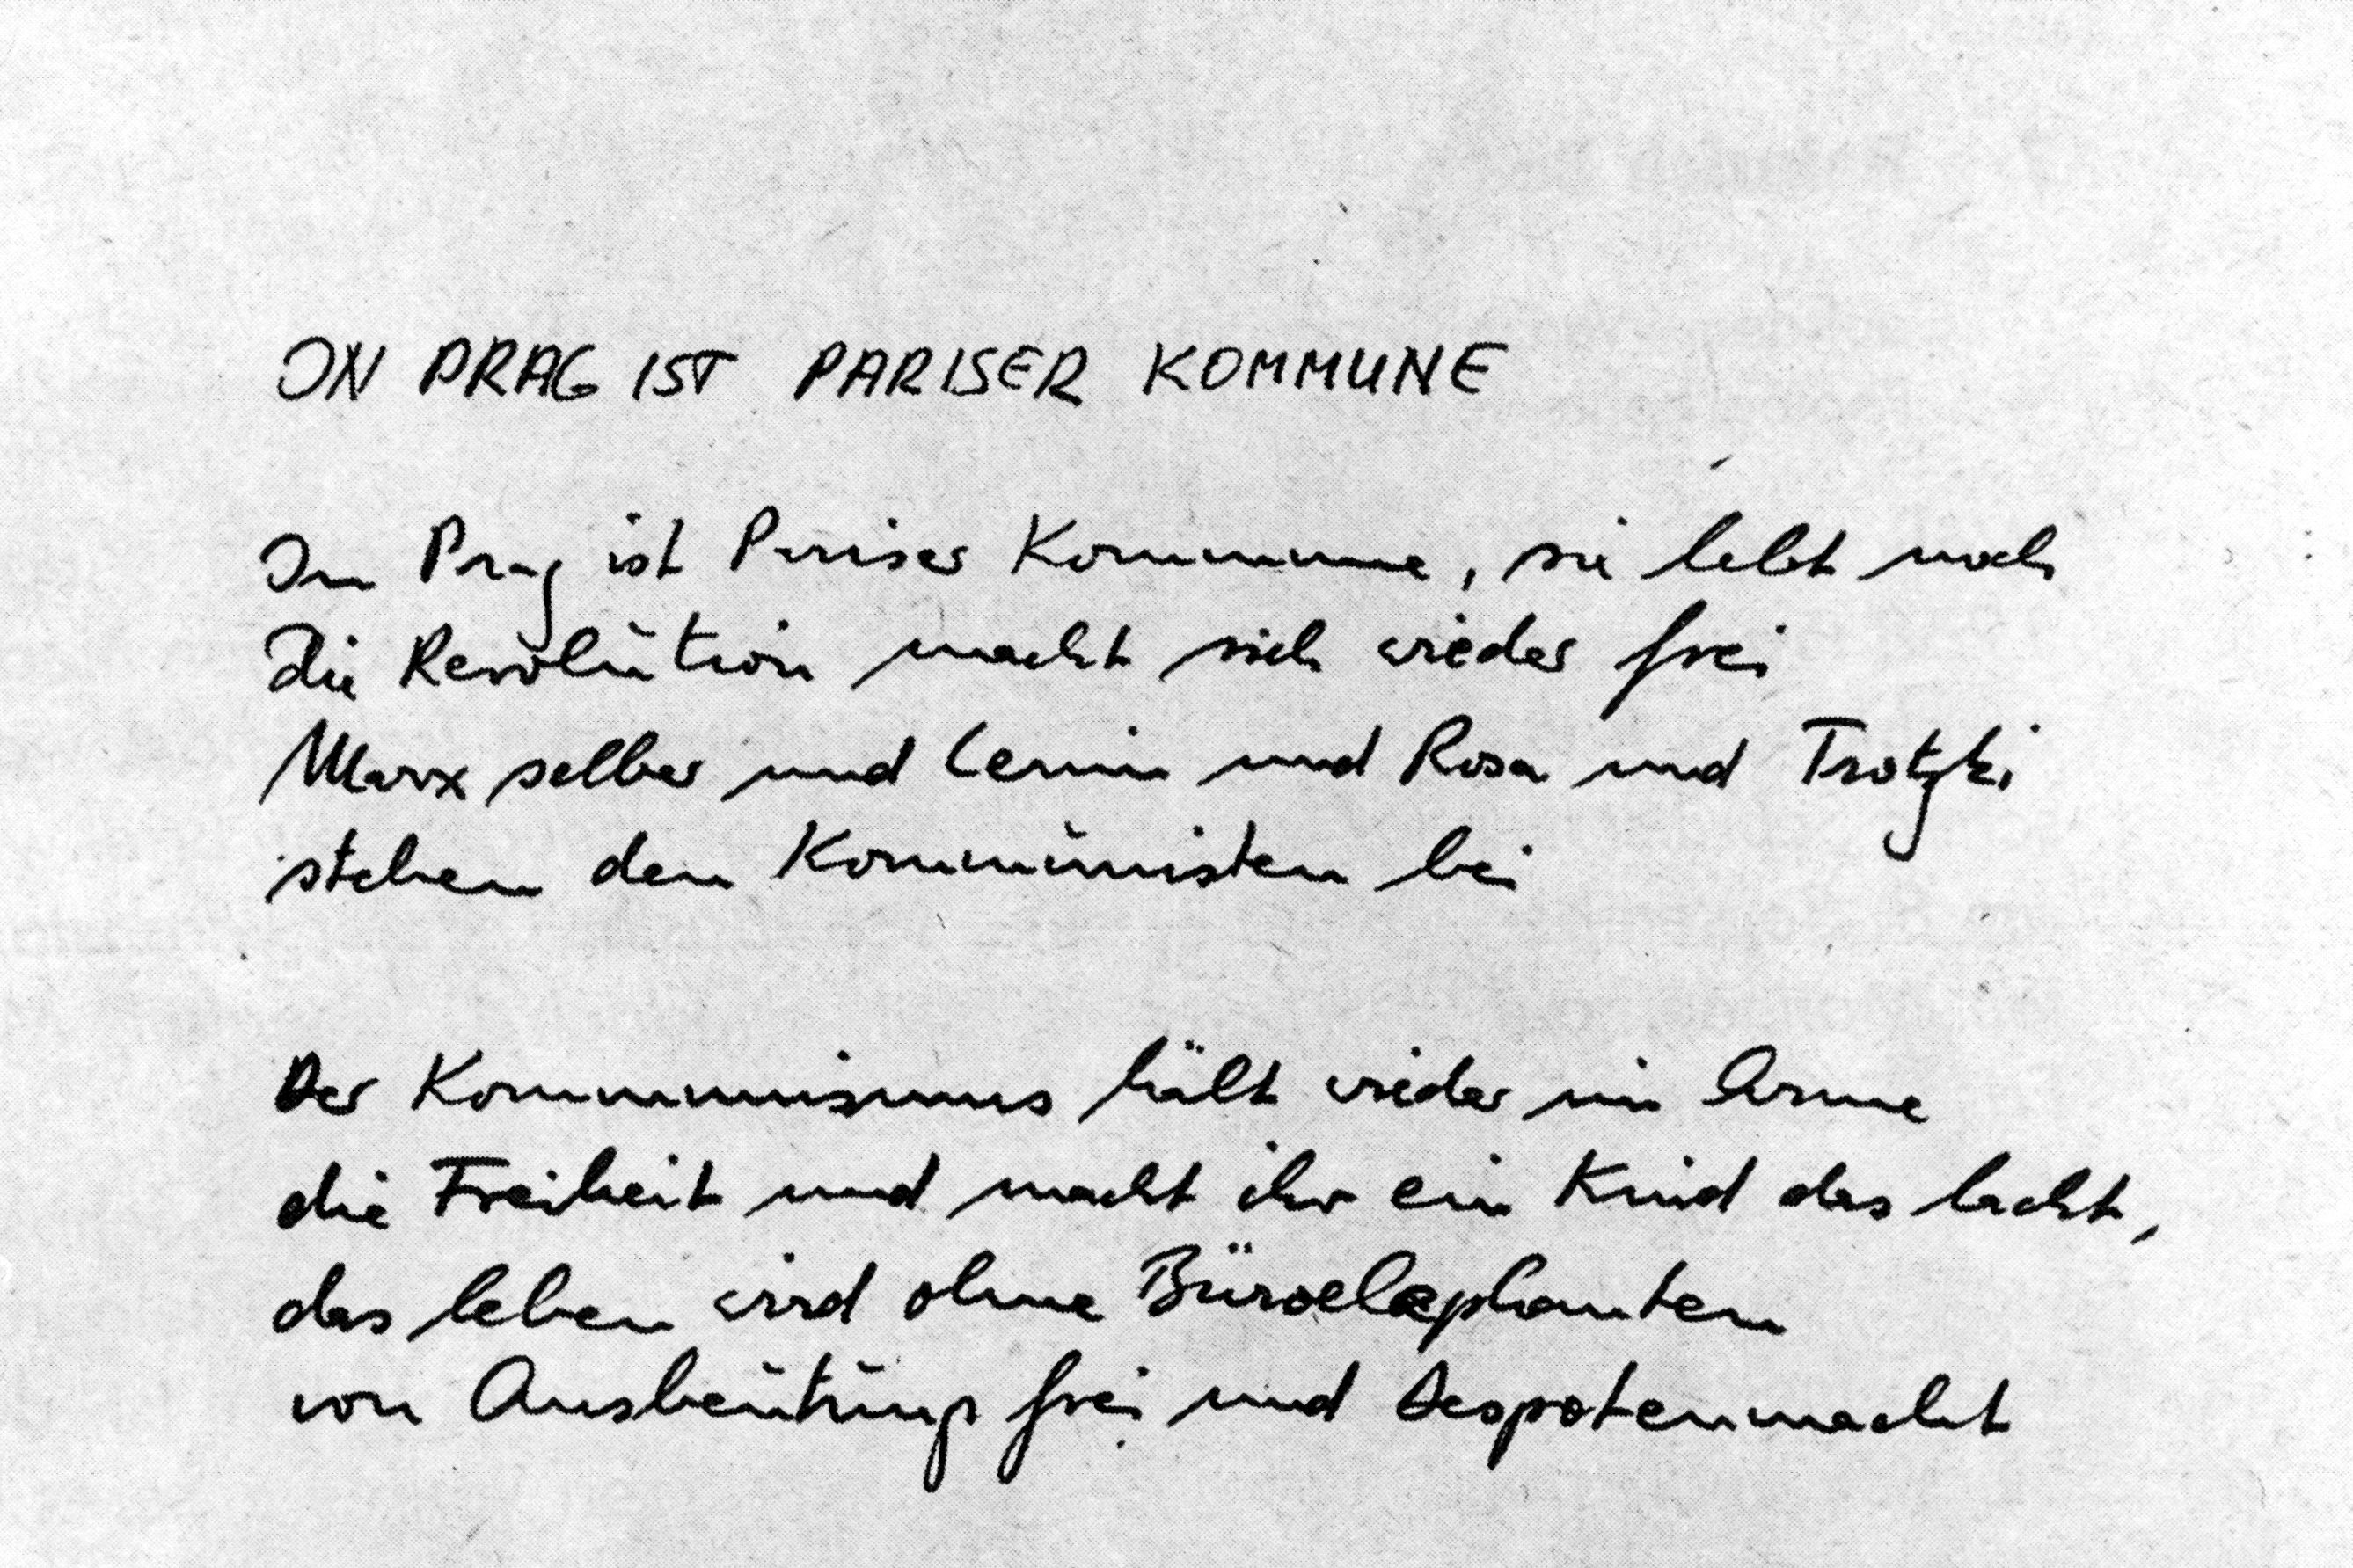 IN PRAG IST PARISER KOMMUNE
In Prag ist Pariser Kommune, sie lebt noch
Die Revolution macht sich wieder frei
Marx selber und Lenin und Rosa und Trotzki
stehen den Kommunisten bei
Der Kommunismus hält wieder im Arme
die Freiheit und macht ihr ein Kind das lacht,
das Leben wird ohne Büroelephanten
von Ausbeutung frei und Despotenmacht